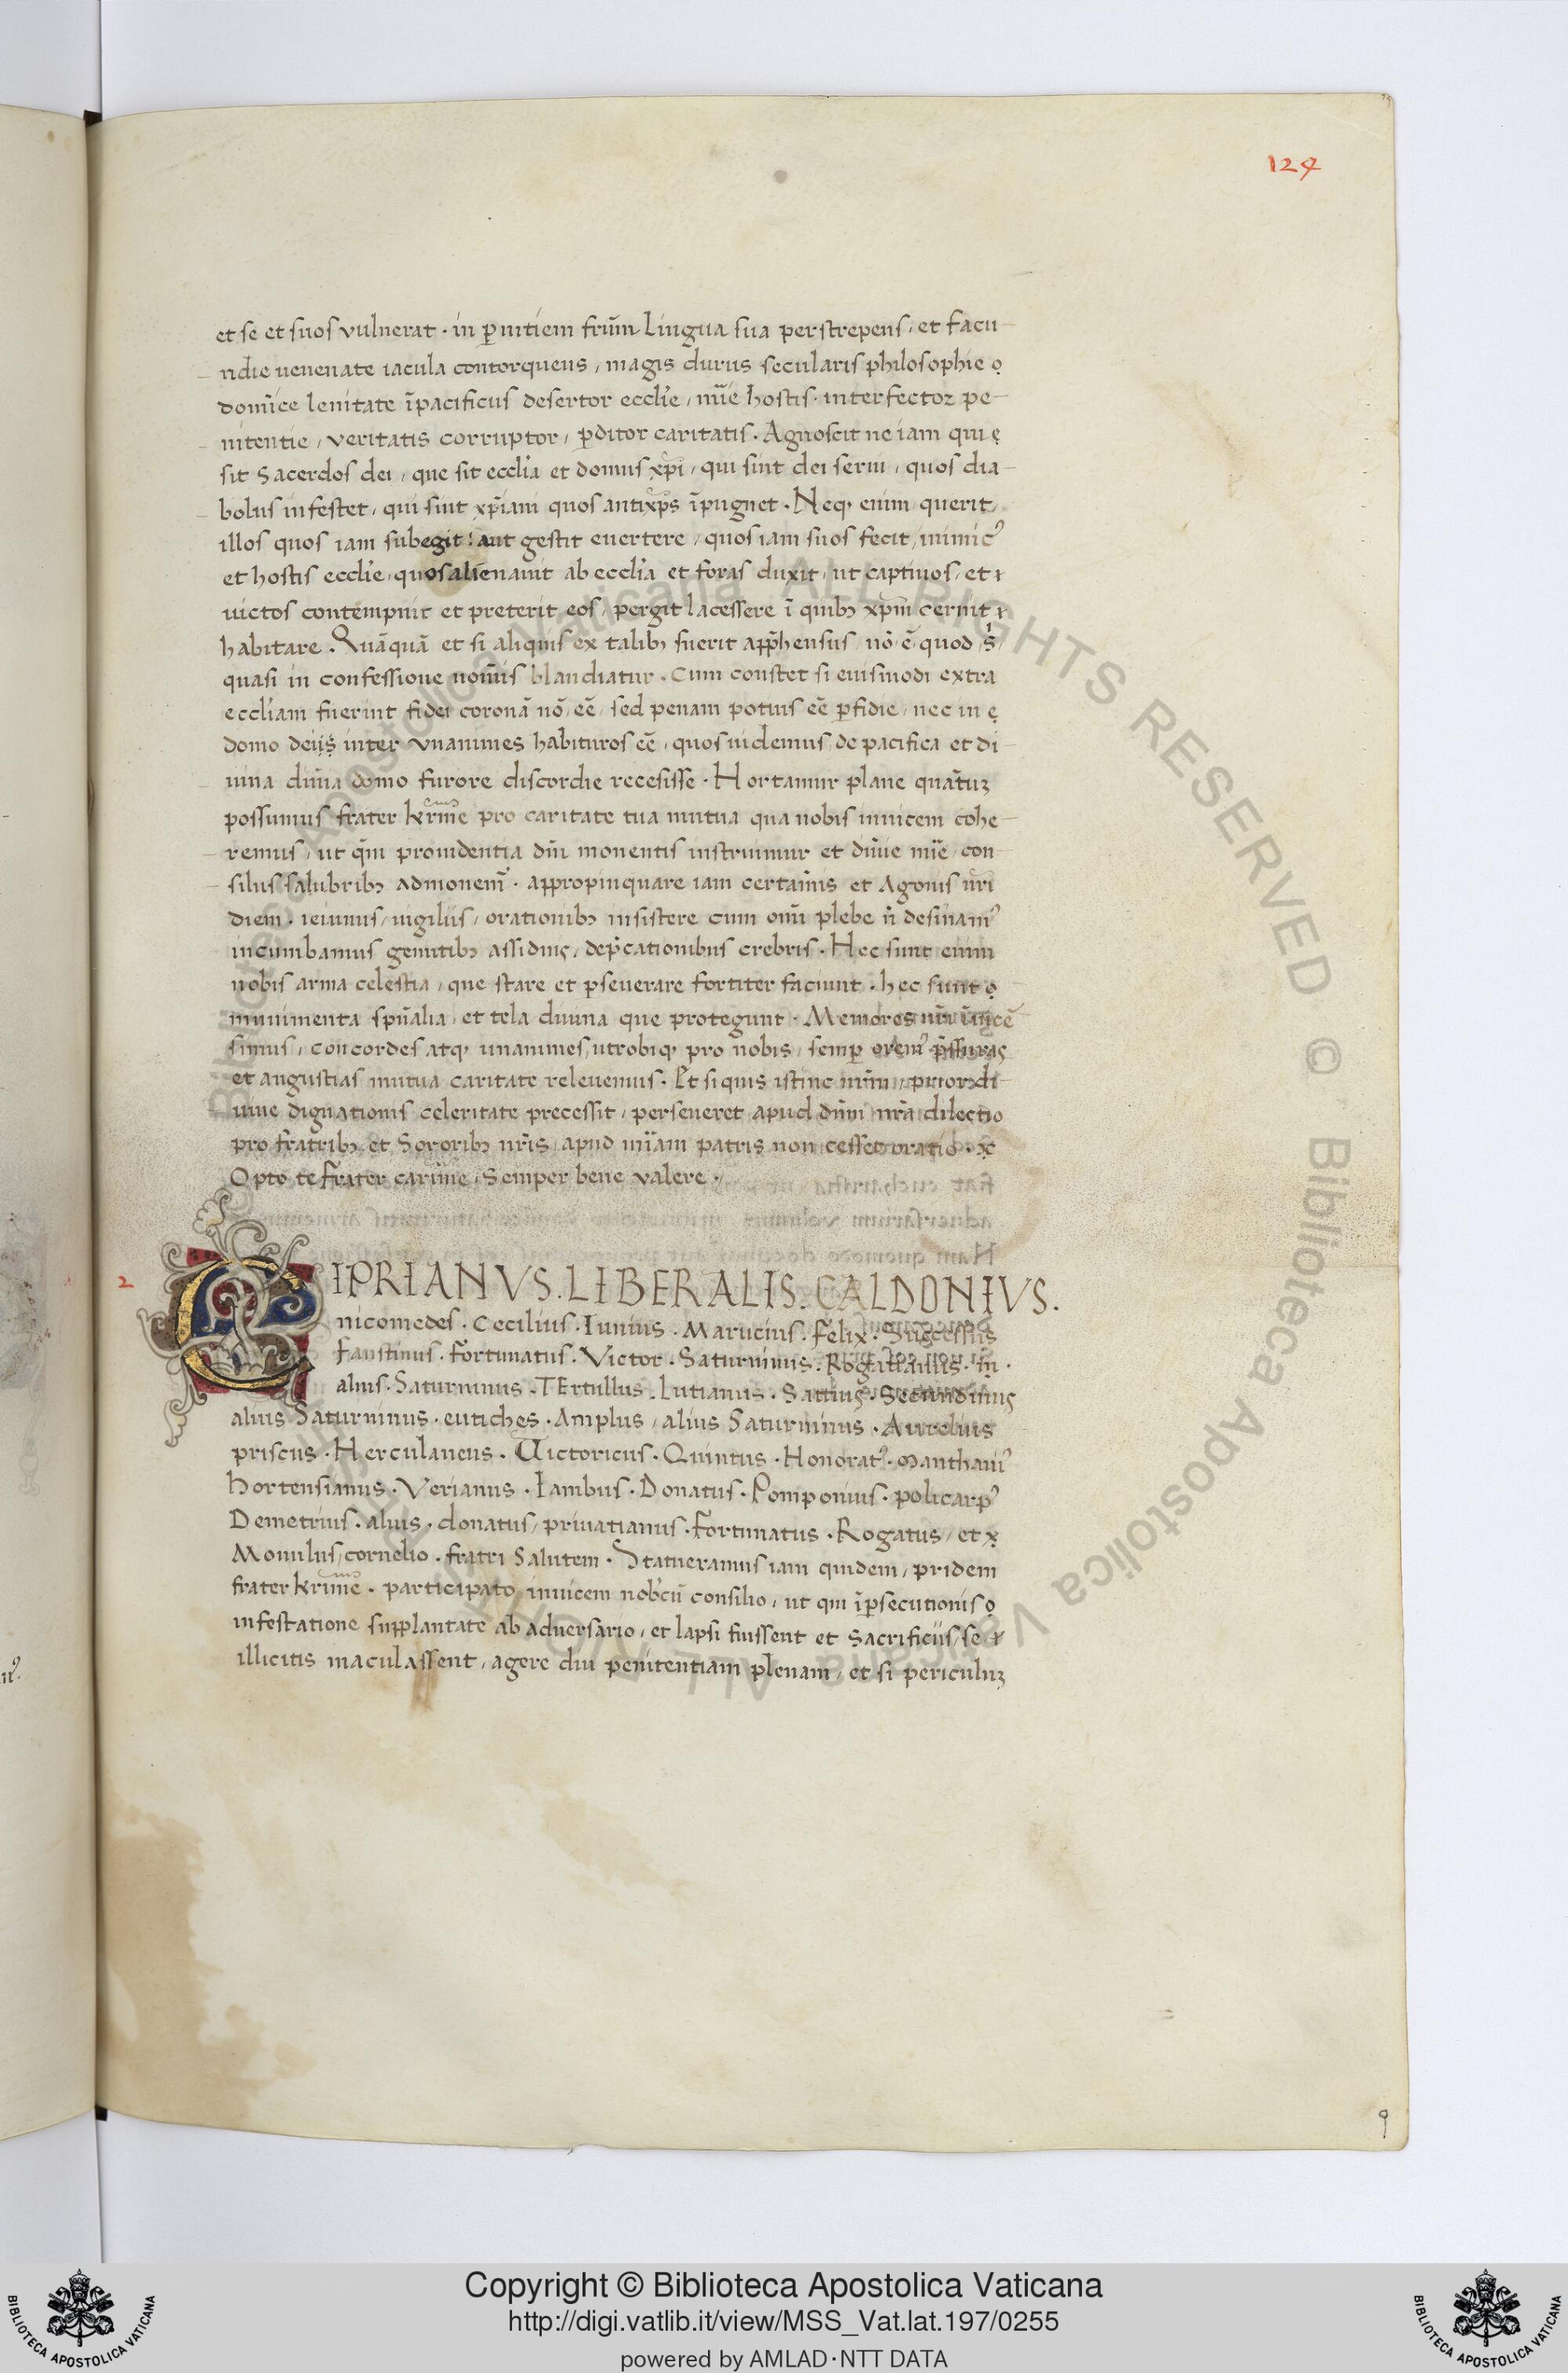 124
et se et suos vulnerat · in p̱nitiem frūm lingua sua perstrepens, et facu-
ndie uenenate iacula contorquens, magis durus secularis philosophie
domīce lenitate īpacificus desertor eccl̓ie, mīe hostis, interfector pe-
nitentie, veritatis corruptor, p̱ditor caritatis. Agnoscit ne iam qui
sit Sacerdos dei, que sit eccl̓ia et domus xp̄i, qui sint dei serui, quos dia-
bolus infestet, qui sint xp̄iani quos antixp̄s īpugnet. Neqꝫ enim querit
illos quos iam subegit: aut gestit euertere, quos iam suos fecit, inimicꝰ
et hostis eccl̓ie, quos alienauit ab eccl̓ia et foras duxit, ut captiuos, et
uictos contempnit et preterit eos, pergit lacessere ī quibꝫ xp̄m cernit
habitare. Quāquā et si aliquis ex talibꝫ fuerit app̄hensus, nō ē quod s̓
quasi in confessione nom̄is blandiatur. Cum constet si eiusmodi extra
eccliam fuerint fidei coronā nō eē, sed penam potius eē p̱fidie, nec in
domo dei inter vnanimes habituros eē, quos uidemus de pacifica et di-
uina diuīa domo furore discordie recesisse. Hortamur plane quātuꝫ
possumus frater krm̄e pro caritate tua mutua qua nobis inuicem cohe-
remus, ut qm̄ prouidentia dn̄i monentis instruimur et diuīe mīe con-
siliis salubribꝫ admonemꝰ. appropinquare iam certamīs et Agonis nr̄i
diem. ieiuniis, uigiliis, orationibꝫ insistere cum om̄i plebe n̄ desinamꝰ
incumbamus gemitibꝫ assiduis, dep̄cationibus crebris. Hec sunt enim
nobis arma celestia, que stare et p̱seuerare fortiter faciunt. hec sunt
munimenta spūalia, et tela diuina que protegunt. Memores nr̄i īuicē
simus, concordes atqꝫ unanimes, utrobiqꝫ pro nobis, semp̱ oremꝰ p̄ssuras
et angustias mutua caritate releuemus. Et si quis istinc nr̄m, prior di-
uine dignationis celeritate precessit, perseueret apud dn̄m nr̄a dilectio
pro fratribꝫ et Sororibꝫ nr̄is, apud mīam patris non cesset oratio.
Opto te frater carīme, Semper bene valere.
2
CIPRIANVS. LIBERALIS. CALDONIVS.
nicomedes. Cecilius. Iunius. Marucius. Felix. Successus
Faustinus. Fortunatus. Victor. Saturninus. Rogatianus.
alius. Saturninus. TErtullus. Lutianus. Sattius. Secundinus
alius Saturninus. eutiches. Amplus, alius Saturninus. Aurelius
priscus. Herculaneus. Victoricus. Quintus. Honoratꝰ. Manthaniꝰ
hortensianus. Verianus. Iambus. Donatus. Pomponius. policarpꝰ
Demetrius. alius. donatus, priuatianus. Fortunatus. Rogatus, et
Monulus, cornelio. fratri Salutem. Statueramus iam quidem, pridem
frater krīme. participato inuicem nob̓cū consilio, ut qui īp̱secutionis
infestatione supplantate ab aduersario, et lapsi fuissent et Sacrificiis, se
illicitis maculassent, agere diu penitentiam plenam, et si periculuꝫ
9
Biblioteca Apostolica Vaticana ALL RIGHTS RESERVED © Biblioteca Apostolica Vaticana
Copyright © Biblioteca Apostolica Vaticana
http://digi.vatlib.it/view/MSS_Vat.lat.197/0255
powered by AMLAD·NTT DATA
BIBLIOTECA APOSTOLICA VATICANA
BIBLIOTECA APOSTOLICA VATICANA